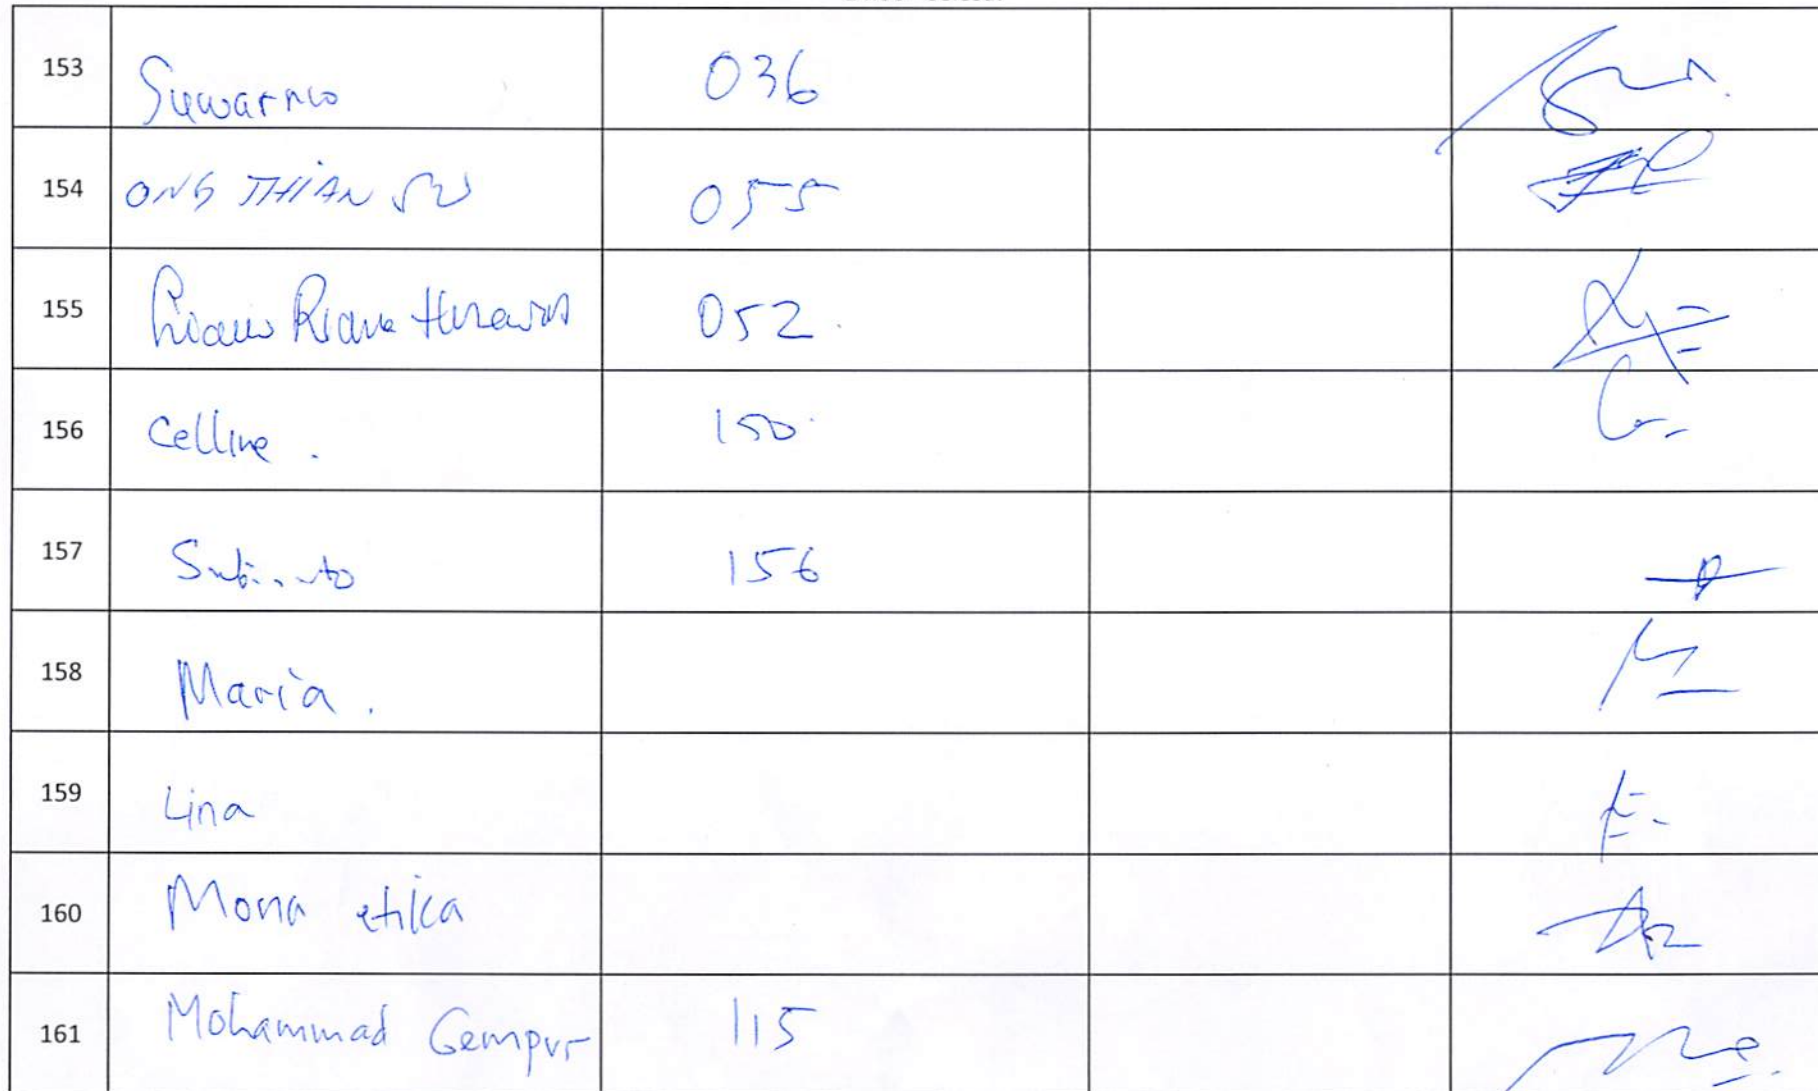 153 Suwarno 036
154 ONG THIAN SU 055
155 Riana 052.
156 Celline. 150.
157 156
158 Maria.
159 Lina
160 Mona etika
161 Mohammad Gempur 115